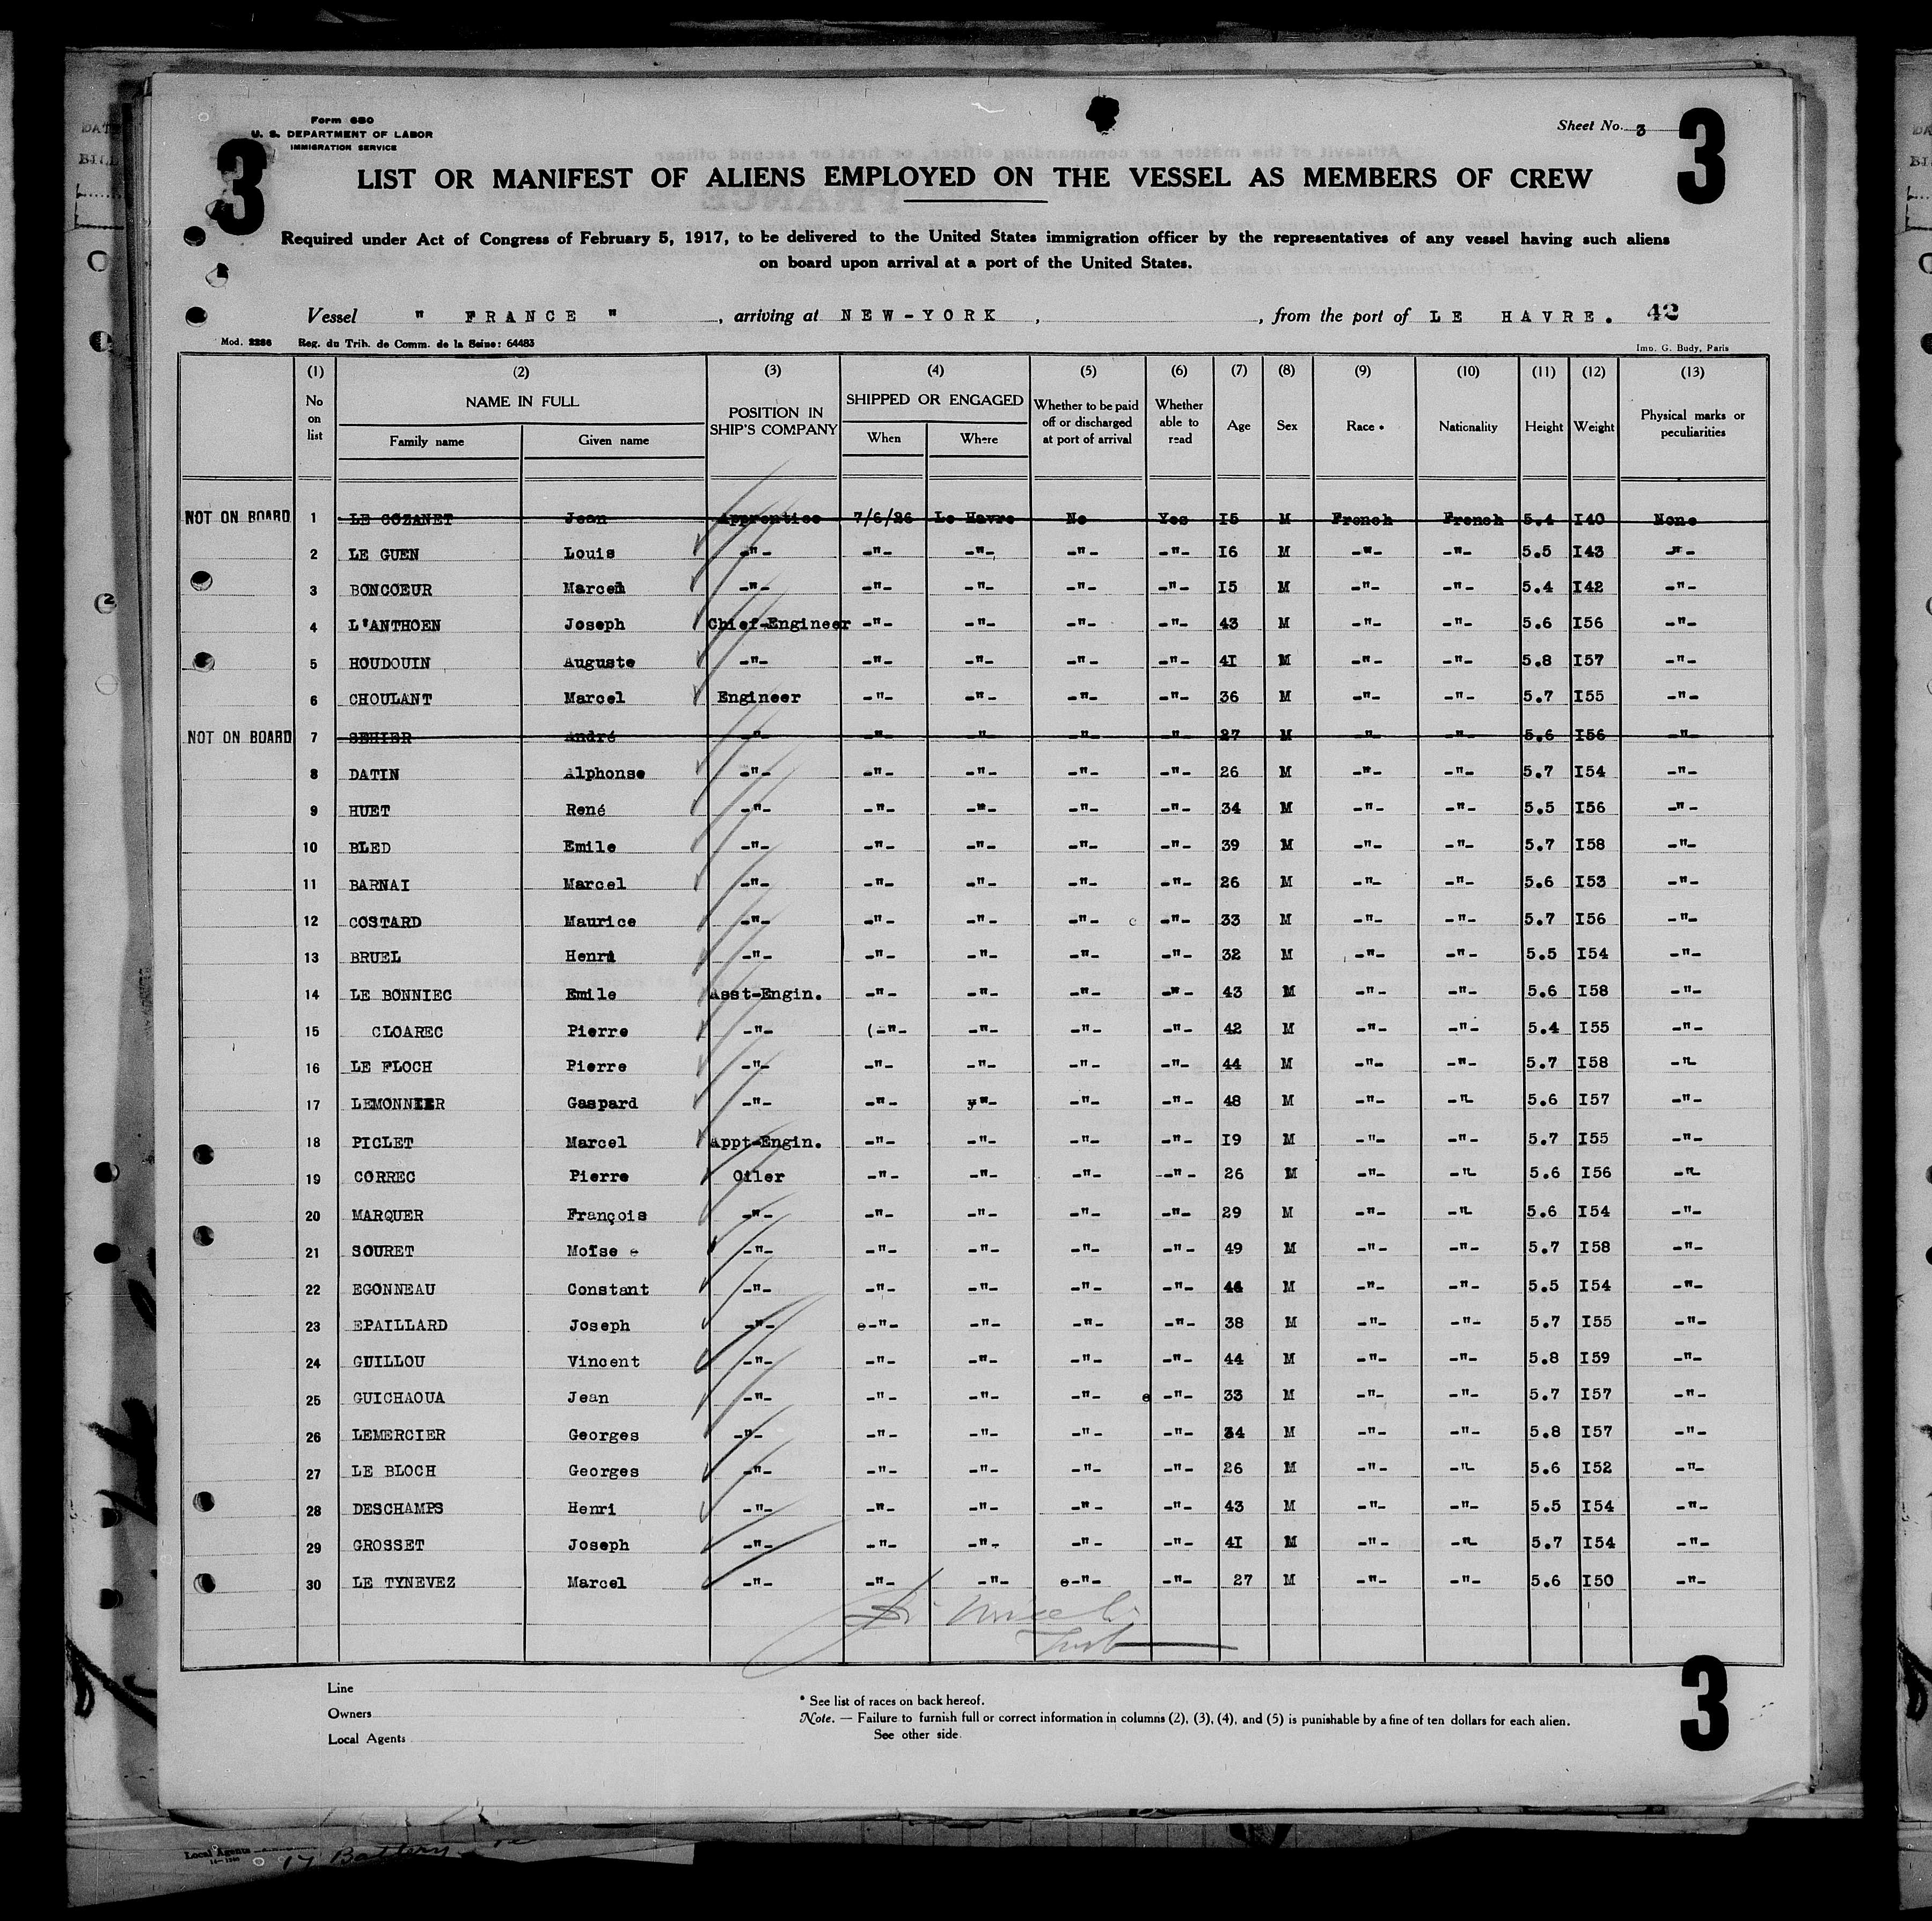 Form 680
U. S. DEPARTMENT OF LABOR
IMMIGRATION SERVICE
Sheet No. 3
3
3
LIST OR MANIFEST OF ALIENS EMPLOYED ON THE VESSEL AS MEMBERS OF CREW
Required under Act of Congress of February 5, 1917, to be delivered to the United States immigration officer by the representatives of any vessel having such aliens
on board upon arrival at a port of the United States.
Vessel " FRANCE " , arriving at NEW-YORK , , from the port of LE HAVRE. 42
Mod. 2286 Reg. du Trib. de Comm. de la Seine: 64483 Imp. G. Budy, Paris
(1) (2) (3) (4) (5) (6) (7) (8) (9) (10) (11) (12) (13)
No on list NAME IN FULL Family name Given name POSITION IN SHIP'S COMPANY SHIPPED OR ENGAGED When Where Whether to be paid off or discharged at port of arrival Whether able to read Age Sex Race * Nationality Height Weight Physical marks or peculiarities
NOT ON BOARD 1 LE COZANET Jean Apprentice 7/6/26 Le Havre No Yes I5 M French French 5.4 I40 None
2 LE GUEN Louis -"- -"- -"- -"- -"- I6 M -"- -"- 5.5 I43 -"-
3 BONCOEUR Marcel -"- -"- -"- -"- -"- I5 M -"- -"- 5.4 I42 -"-
4 L'ANTHOEN Joseph Chief-Engineer -"- -"- -"- -"- 43 M -"- -"- 5.6 I56 -"-
5 HOUDOUIN Auguste -"- -"- -"- -"- -"- 4I M -"- -"- 5.8 I57 -"-
6 CHOULANT Marcel Engineer -"- -"- -"- -"- 36 M -"- -"- 5.7 I55 -"-
NOT ON BOARD 7 SEHIER André -"- -"- -"- -"- -"- 27 M -"- -"- 5.6 I56 -"-
8 DATIN Alphonse -"- -"- -"- -"- -"- 26 M -"- -"- 5.7 I54 -"-
9 HUET René -"- -"- -"- -"- -"- 34 M -"- -"- 5.5 I56 -"-
10 BLED Emile -"- -"- -"- -"- -"- 39 M -"- -"- 5.7 I58 -"-
11 BARNAI Marcel -"- -"- -"- -"- -"- 26 M -"- -"- 5.6 I53 -"-
12 COSTARD Maurice -"- -"- -"- -"- c -"- 33 M -"- -"- 5.7 I56 -"-
13 BRUEL Henri -"- -"- -"- -"- -"- 32 M -"- -"- 5.5 I54 -"-
14 LE BONNIEC Emile Asst-Engin. -"- -"- -"- -"- 43 M -"- -"- 5.6 I58 -"-
15 CLOAREC Pierre -"- (-"- -"- -"- -"- 42 M -"- -"- 5.4 I55 -"-
16 LE FLOCH Pierre -"- -"- -"- -"- -"- 44 M -"- -"- 5.7 I58 -"-
17 LEMONNIER Gaspard -"- -"- y"- -"- -"- 48 M -"- -"- 5.6 I57 -"-
18 PICLET Marcel Appt-Engin. -"- -"- -"- -"- I9 M -"- -"- 5.7 I55 -"-
19 CORREC Pierre Oiler -"- -"- -"- -"- 26 M -"- -"- 5.6 I56 -"-
20 MARQUER François -"- -"- -"- -"- -"- 29 M -"- -"- 5.6 I54 -"-
21 SOURET Moïse e -"- -"- -"- -"- -"- 49 M -"- -"- 5.7 I58 -"-
22 EGONNEAU Constant -"- -"- -"- -"- -"- 44 M -"- -"- 5.5 I54 -"-
23 EPAILLARD Joseph -"- e-"- -"- -"- -"- 38 M -"- -"- 5.7 I55 -"-
24 GUILLOU Vincent -"- -"- -"- -"- -"- 44 M -"- -"- 5.8 I59 -"-
25 GUICHAOUA Jean -"- -"- -"- -"- e -"- 33 M -"- -"- 5.7 I57 -"-
26 LEMERCIER Georges -"- -"- -"- -"- -"- 34 M -"- -"- 5.8 I57 -"-
27 LE BLOCH Georges -"- -"- -"- -"- -"- 26 M -"- -"- 5.6 I52 -"-
28 DESCHAMPS Henri -"- -"- -"- -"- -"- 43 M -"- -"- 5.5 I54 -"-
29 GROSSET Joseph -"- -"- -"- -"- -"- 4I M -"- -"- 5.7 I54 -"-
30 LE TYNEVEZ Marcel -"- -"- -"- e-"- -"- 27 M -"- -"- 5.6 I50 -"-
Line
Owners
Local Agents
* See list of races on back hereof.
Note. — Failure to furnish full or correct information in columns (2), (3), (4), and (5) is punishable by a fine of ten dollars for each alien.
See other side.
3
Local Agents
17 Battery